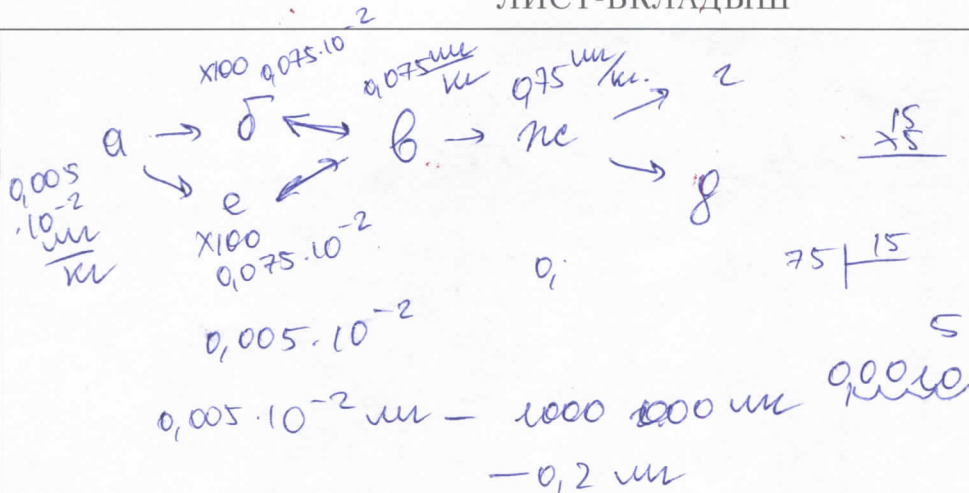 ЛИСТ-ВКЛАДЫШ
х100 0,075·10⁻² 0,075 мг/кг 0,75 мг/кг.
а → б ↔ в → ж → г
0,005·10⁻² мг/кг
е → д
х100
0,075·10⁻²
15
х5
75 | 15
5
0,
0,005·10⁻²
0,005·10⁻² мг — 1000 1000 мг
— 0,2 мг